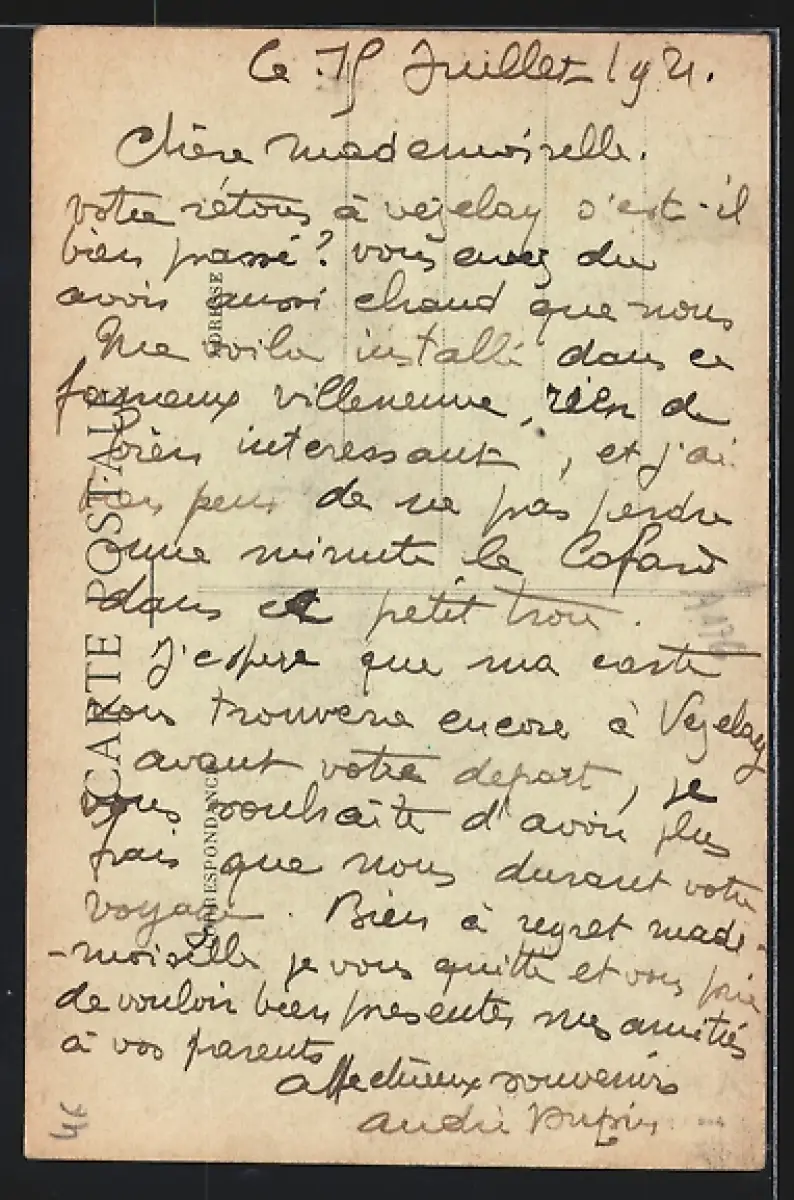 Le 15 Juillet 1921.
Chère mademoiselle.
votre rétour à vezelay s'est-il
bien passé? vous avez du
avoir aussi chaud que nous
Me voila installé dans ce
fameux villeneuve, rien de
bien interessant, et j'ai
bien peur de ne pas perdre
une minute le Cafard
dans ce petit trou.
J'espere que ma carte
vous trouvera encore à Vezelay
avant votre depart, je
vous souhaite d'avoir plus
frais que nous durant votre
voyage. Bien à regret made-
-moiselle je vous quitte et vous prie
de vouloir bien presenter mes amitiés
à vos parents
affectueux souvenirs
andré
CARTE POSTALE
CORRESPONDANCE
ADRESSE